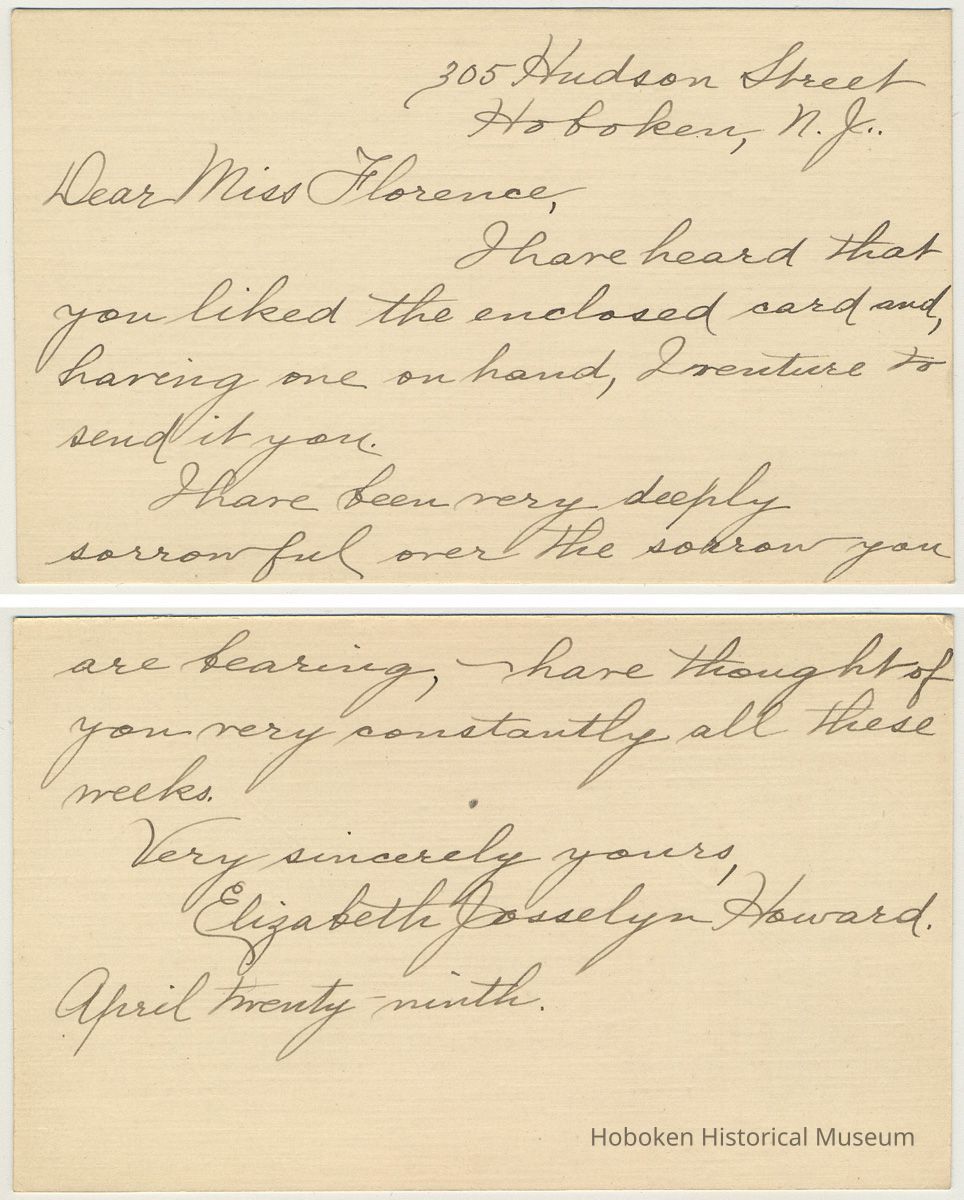 305 Hudson Street
Hoboken, N.J..
Dear Miss Florence,
I have heard that
you liked the enclosed card and,
having one on hand, I venture to
send it you.
I have been very deeply
sorrowful over the sorrow you
are bearing, – have thought of
you very constantly all these
weeks.
Very sincerely yours,
Elizabeth Josselyn Howard.
April twenty-ninth.
Hoboken Historical Museum